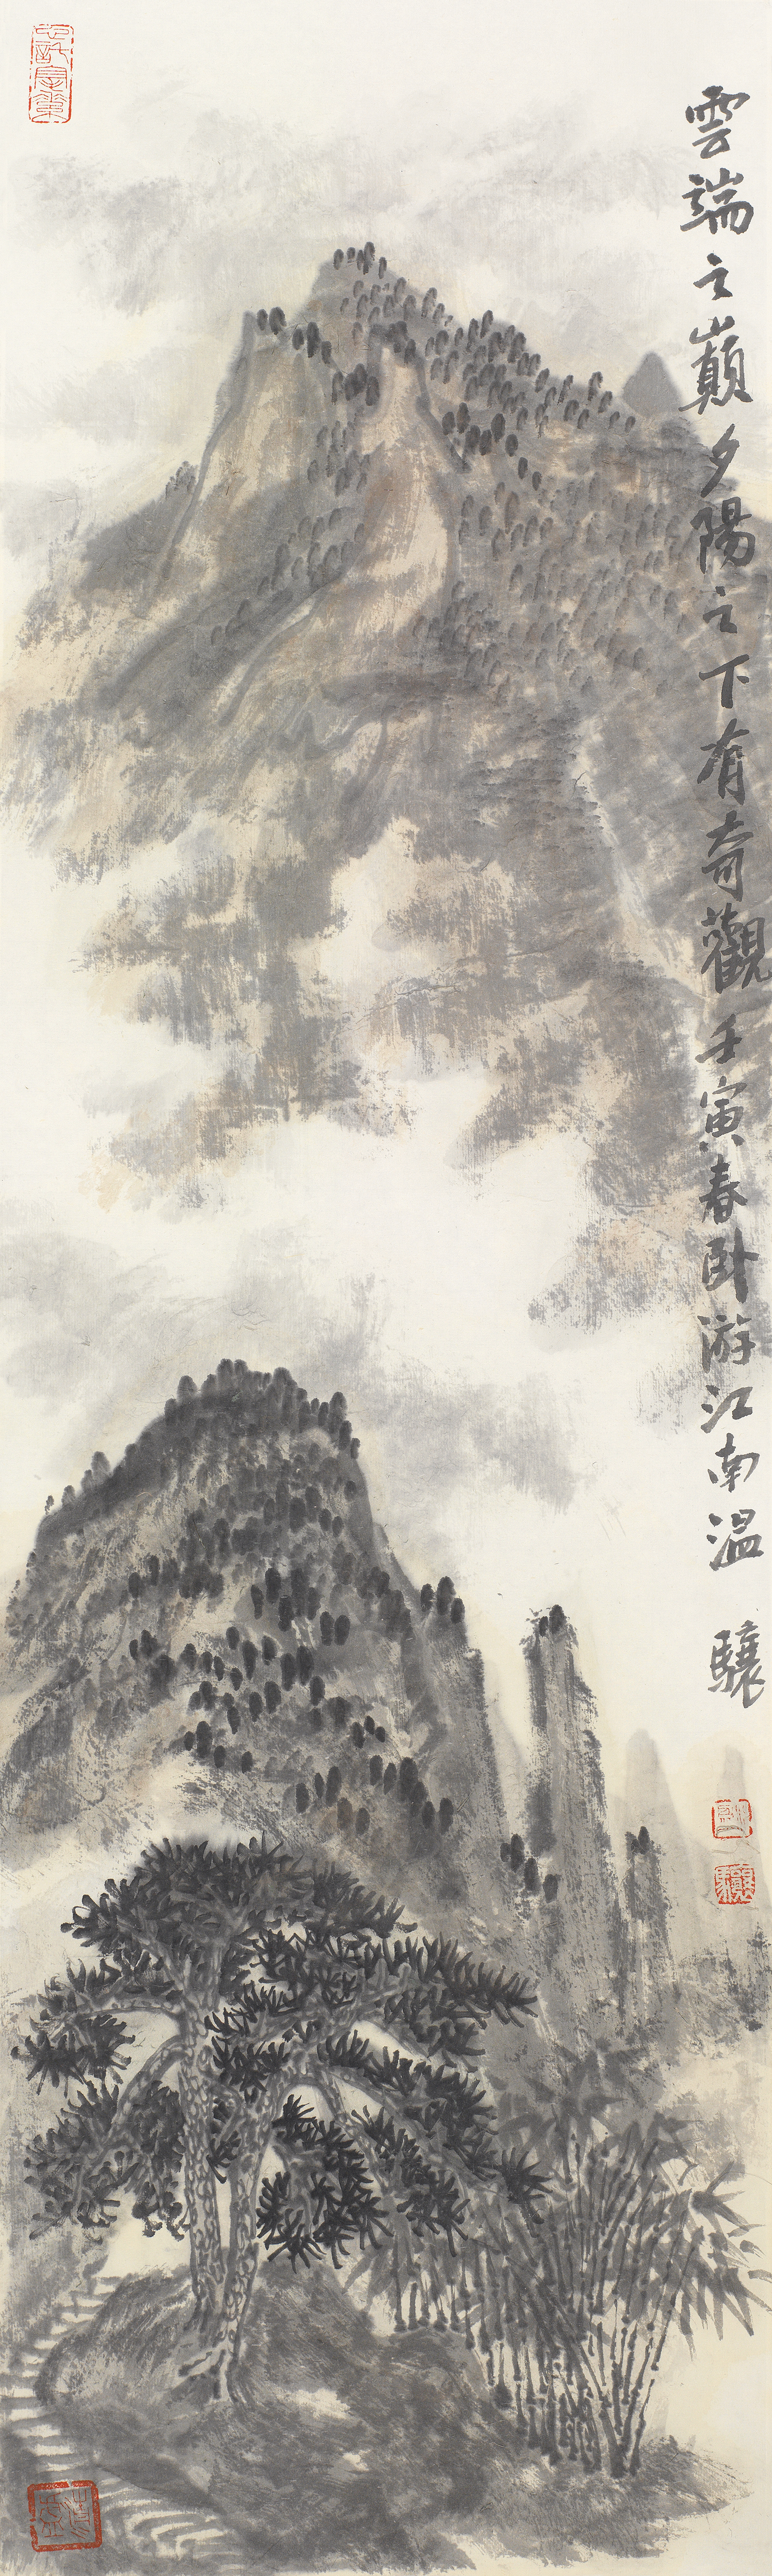 雲端之巔夕陽之下有奇觀壬寅春卧游江南溫驤